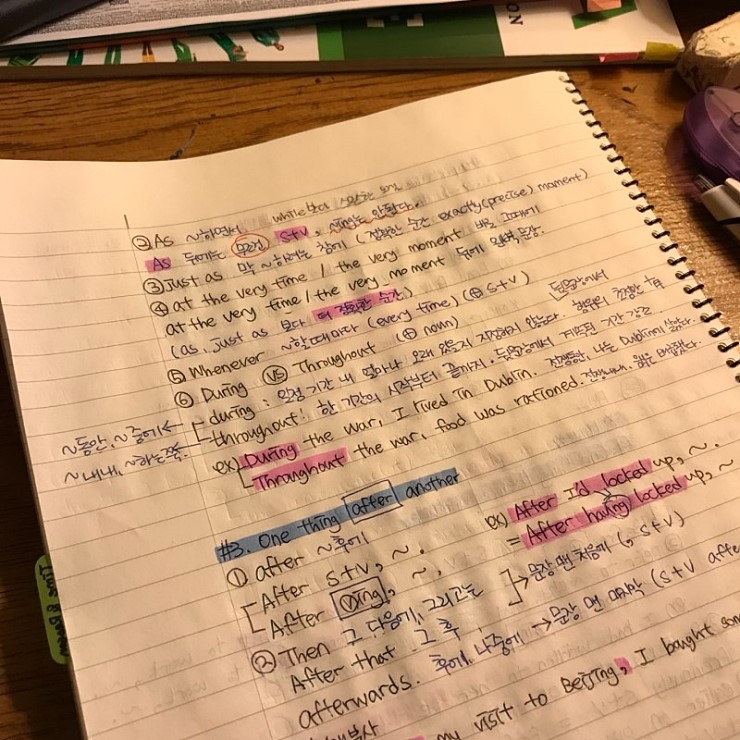 ② As ~하면서
As 뒤에는 무조건 S+V, ~ing는 안된다.
③ Just as 막 ~하려는 참에 (정확한 순간 exactly(precise) moment)
④ at the very time / the very moment 바로 그때에
at the very time / the very moment 뒤에 문장.
(as, just as 보다 더 정확한 순간)
⑤ Whenever ~할때마다 (every time) (⊕ S+V)
⑥ During VS Throughout (⊕ noun)
during : 일정 기간 내 얼마나 오래 있을지 지정하지 않는다.
throughout : 한 기간의 시작부터 끝까지.
~동안, ~중에
~내내, ~하는 쭉.
ex) During the war, I lived in Dublin. 전쟁동안, 나는 Dublin에 살았다.
Throughout the war, food was rationed.
#3. One thing after another
① after ~후에
After S+V, ~.
After Ving, ~.
ex) After I'd locked up, ~.
= After having locked up, ~
→ 문장 맨 처음에 (, S+V)
② Then 그 다음에, 그리고는
After that 그 후
afterwards. 후에, 나중에 → 문장 맨 마지막 (S+V afte
my visit to Beijing, I bought som
NO